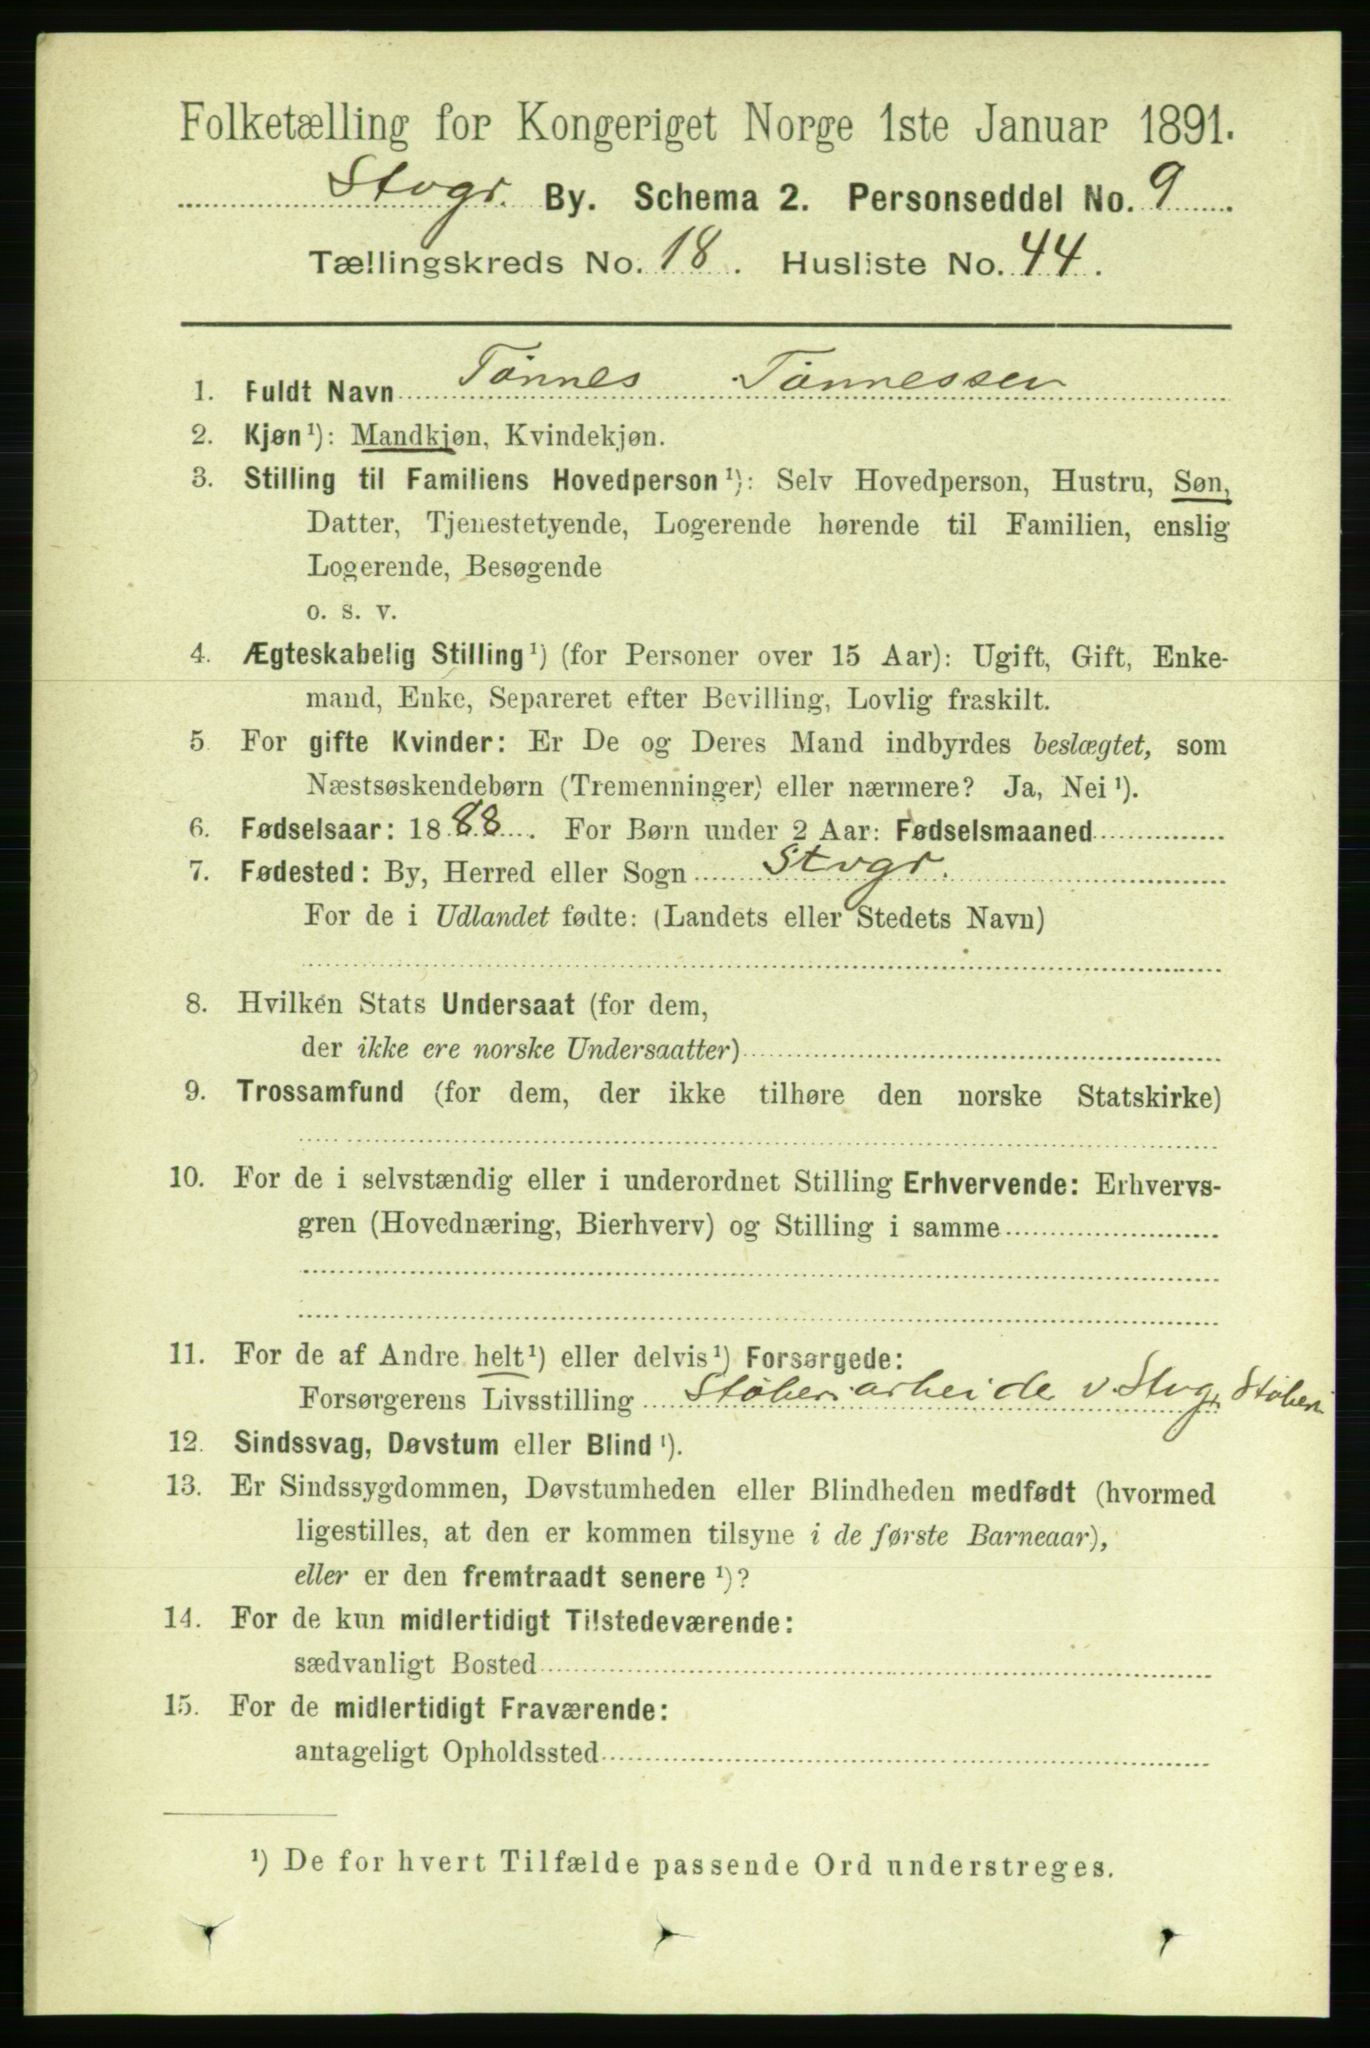 Folketælling for Kongeriget Norge 1ste Januar 1891.
Stvgr. By. Schema 2. Personseddel No. 9
Tællingskreds No. 18. Husliste No. 44.
1. Fuldt Navn Tønnes Tønnessen
2. Kjøn¹): Mandkjøn, Kvindekjøn.
3. Stilling til Familiens Hovedperson¹): Selv Hovedperson, Hustru, Søn,
Datter, Tjenestetyende, Logerende hørende til Familien, enslig
Logerende, Besøgende
o. s. v.
4. Ægteskabelig Stilling¹) (for Personer over 15 Aar): Ugift, Gift, Enke-
mand, Enke, Separeret efter Bevilling, Lovlig fraskilt.
5. For gifte Kvinder: Er De og Deres Mand indbyrdes beslægtet, som
Næstsøskendebørn (Tremenninger) eller nærmere? Ja, Nei¹).
6. Fødselsaar: 1888. For Børn under 2 Aar: Fødselsmaaned
7. Fødested: By, Herred eller Sogn Stvgr.
For de i Udlandet fødte: (Landets eller Stedets Navn)
8. Hvilken Stats Undersaat (for dem,
der ikke ere norske Undersaatter)
9. Trossamfund (for dem, der ikke tilhøre den norske Statskirke)
10. For de i selvstændig eller i underordnet Stilling Erhvervende: Erhvervs-
gren (Hovednæring, Bierhverv) og Stilling i samme
11. For de af Andre helt¹) eller delvis¹) Forsørgede:
Forsørgerens Livsstilling Støberiarbeide v. Stvgr Støberi
12. Sindssvag, Døvstum eller Blind¹).
13. Er Sindssygdommen, Døvstumheden eller Blindheden medfødt (hvormed
ligestilles, at den er kommen tilsyne i de første Barneaar),
eller er den fremtraadt senere¹)?
14. For de kun midlertidigt Tilstedeværende:
sædvanligt Bosted
15. For de midlertidigt Fraværende:
antageligt Opholdssted
¹) De for hvert Tilfælde passende Ord understreges.